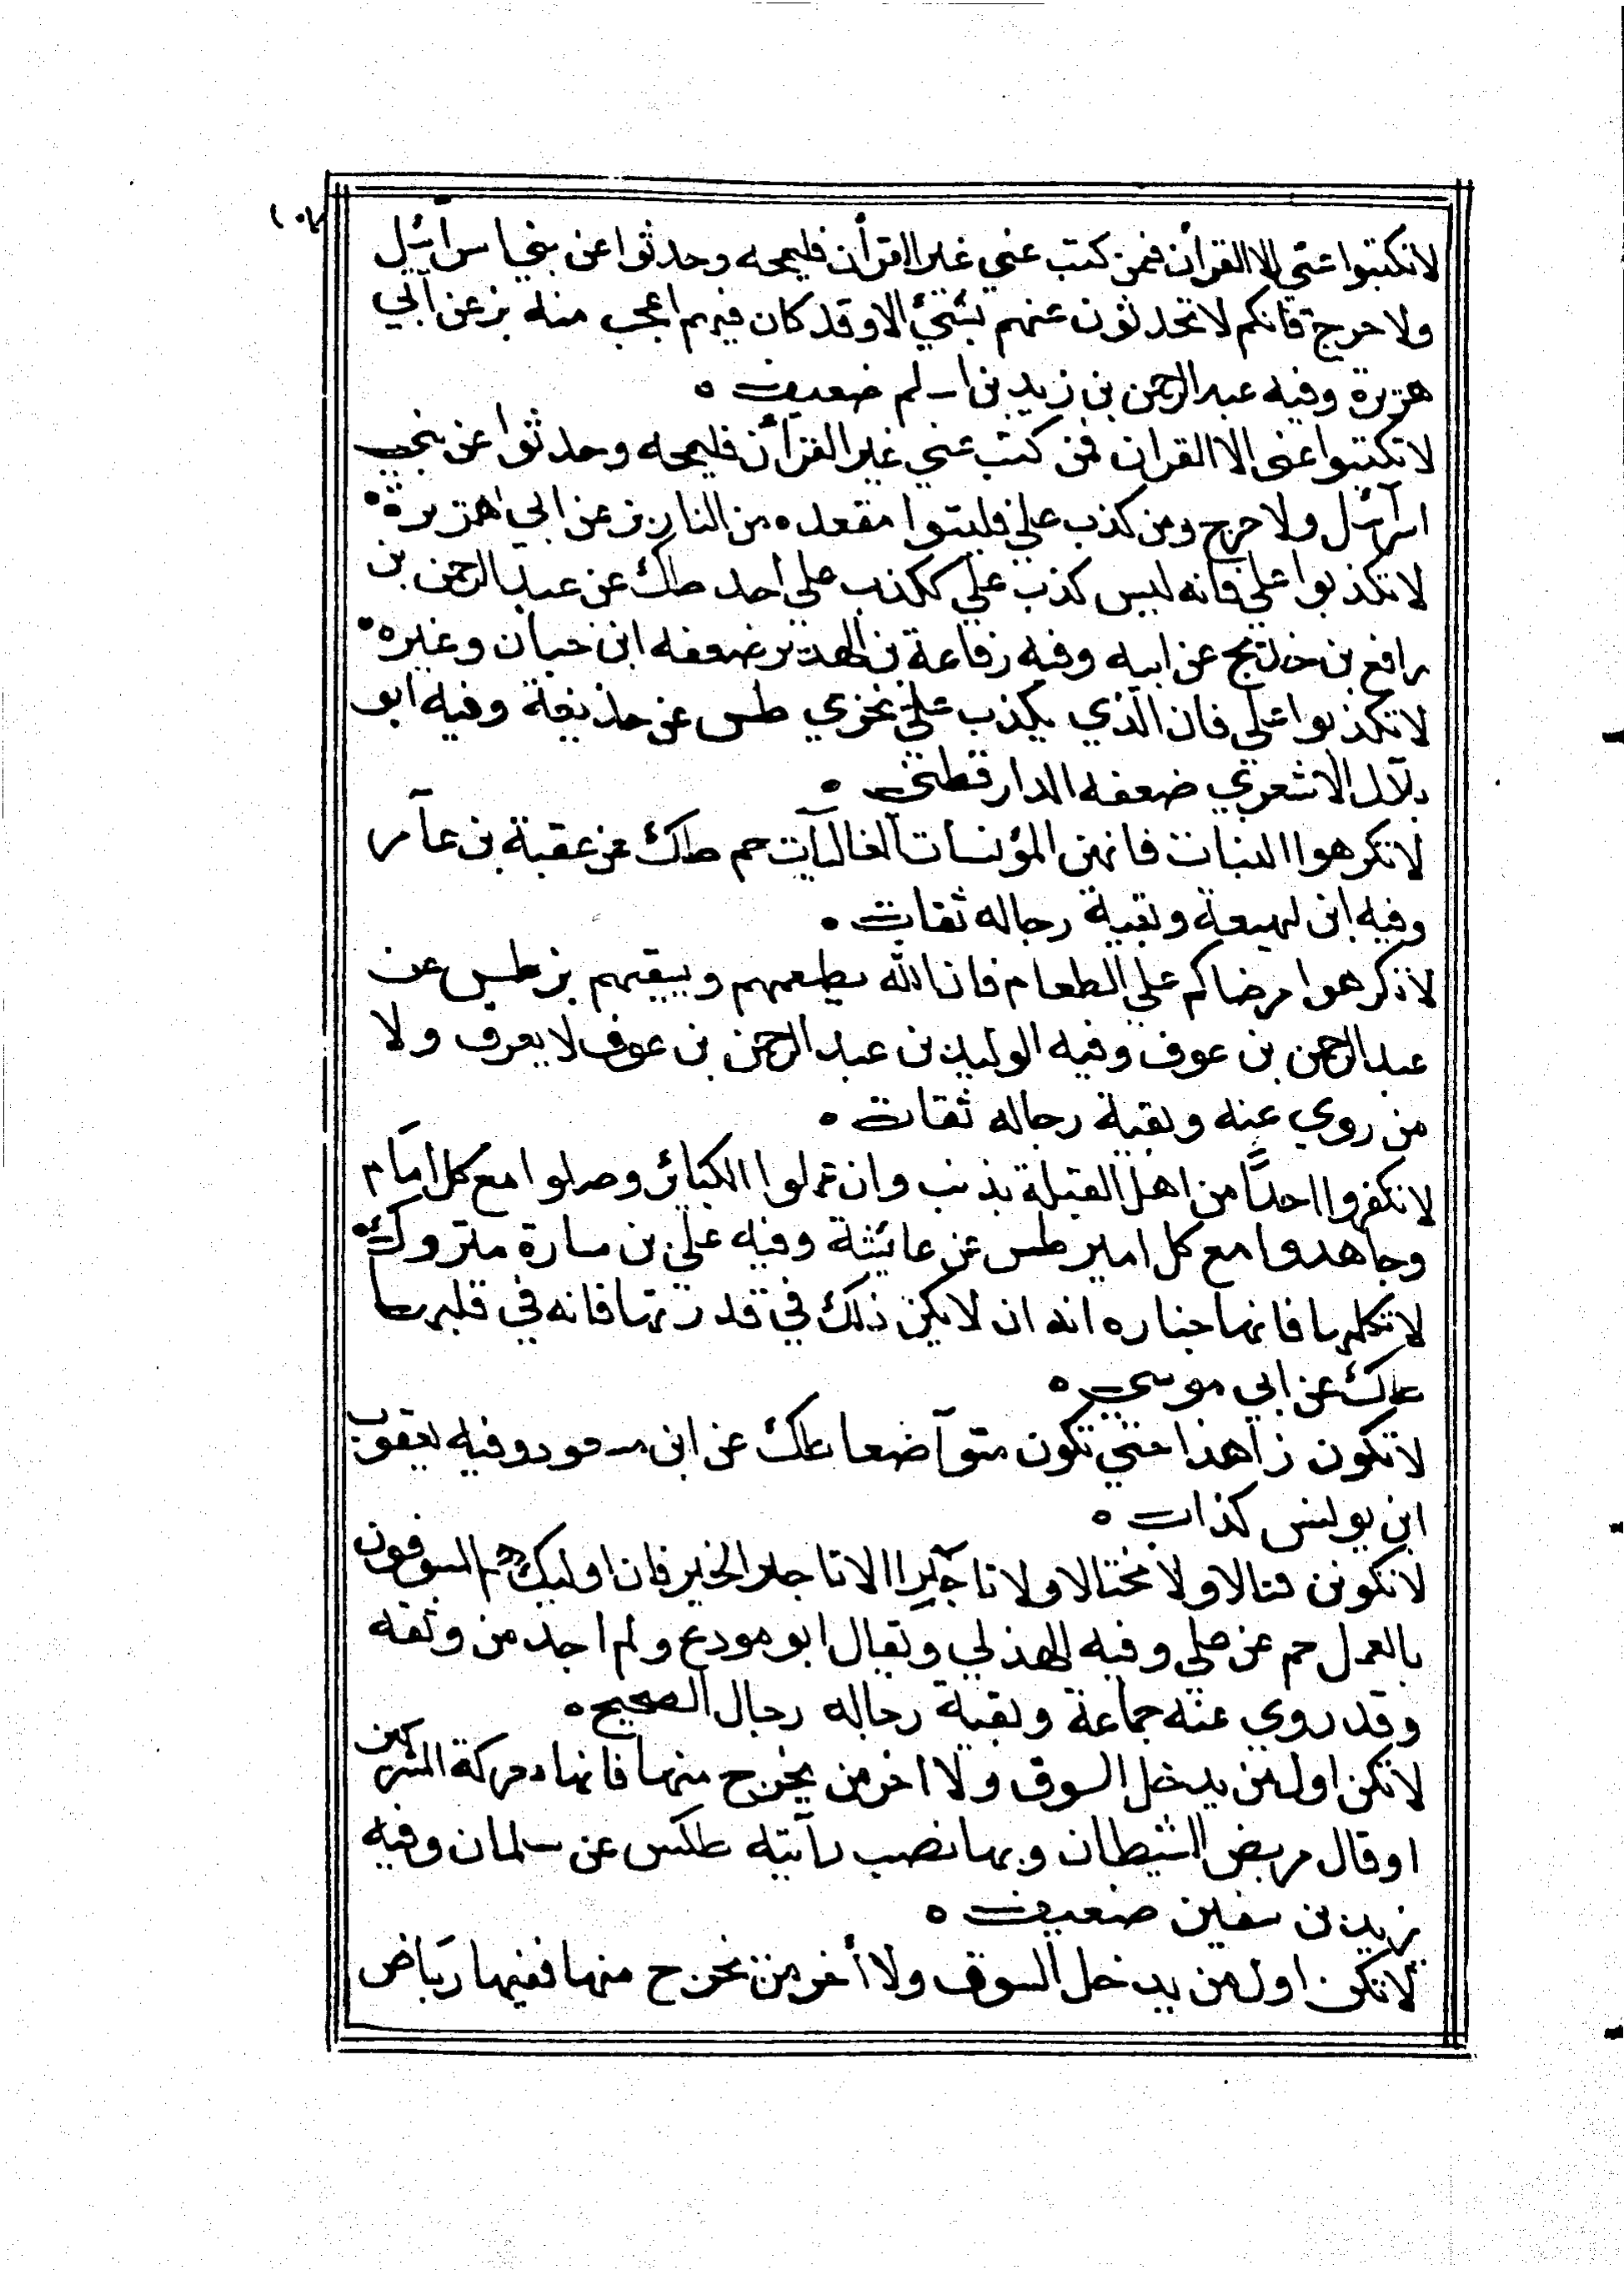 لا تكتبوا عني إلا القرآن فمن كتب عني غير القرآن فليمحه وحدثوا عن بني اسرآئيل
ولا حرج فانكم لا تحدثون عنهم بشئ الا وقد كان فيهم اعجب منه بز عن أبي
هريرة وفيه عبد الرحمن بن زيد بن اسلم ضعيف ه
لا تكتبوا عني الا القران فمن كتب عني غير القرآن فليمحه وحدثوا عن بني
اسرآئيل ولا حرج ومن كذب علي فليتبوا مقعده من النار بز عن ابي هريرة
لا تكذبوا علي فانه ليس كذب علي ككذب علي احد طك عن عبد الرحمن بن
رافع بن خديج عن ابيه وفيه رفاعة بن الهدير ضعفه ابن حبان وغيره
لا تكذبوا علي فان الذي يكذب علي لجري طس عن حذيفة وفيه ابو
بلال الاشعري ضعفه الدارقطني ه
لا تكرهوا البنات فانهن المؤنسات الغاليات حم طك عن عقبة بن عامر
وفيه ابن لهيعة وبقية رجاله ثقات ه
لا تكرهوا مرضاكم علي الطعام فان الله يطعمهم ويسقيهم بز طس عن
عبد الرحمن بن عوف وفيه الوليد بن عبد الرحمن بن عوف لا يعرف ولا
من روي عنه وبقية رجاله ثقات ه
لا تكفروا احدًا من اهل القبلة بذنب وان عملوا الكبائر وصلوا مع كل امام
وجاهدوا مع كل امير طس عن عائشة وفيه علي بن سارة متروك
لا تكلمها فانها جباره انه ان لا يكن ذلك في قدرتها فانه في قلبها
طك عن ابي موسي ه
لا تكون زاهدا حتي تكون متواضعا طك عن ابن مسعود وفيه يعقوب
ابن يونس كذاب ه
لا تكونن فتالا ولا مختالا ولا تاجرا الا تاجر الخير فان اوليك هم المسوفون
بالعمل حم عن علي وفيه الهذلي ويقال ابو مودع ولم اجد من وثقه
وقد روي عنه جماعة وبقية رجاله رجال الصحيح ه
لا تكن اول من يدخل السوق ولا اخر من يخرج منها فانها معركة المشركين
او قال مربض الشيطان وبها نصب رآيته طكس عن سلمان وفيه
يزيد بن سفين ضعيف ه
لا تكن اول من يدخل السوق ولا أخر من يخرج منها ففيها رباض